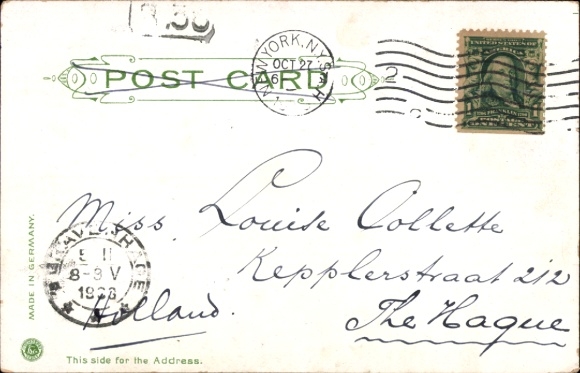 POST CARD
NEW YORK, N.Y.
OCT 27
2
UNITED STATES OF AMERICA
Miss Louise Collette
Kepplerstraat 212
The Hague
Holland.
'S GRAVENHAGE
5 11
8-3 V
1906
MADE IN GERMANY.
This side for the Address.